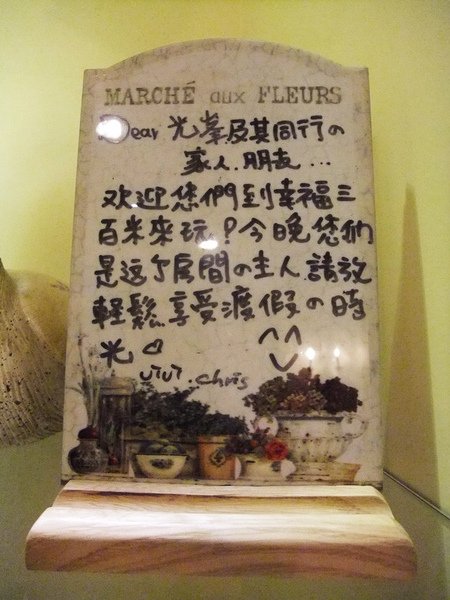 MARCHÉ aux FLEURS
Dear 光峯及其同行の
家人.朋友...
欢迎您們到幸福三
百米來玩?今晚您们
是这了房間の主人請放
輕鬆享受渡假の時
光♡ ^^
ViVi.chris